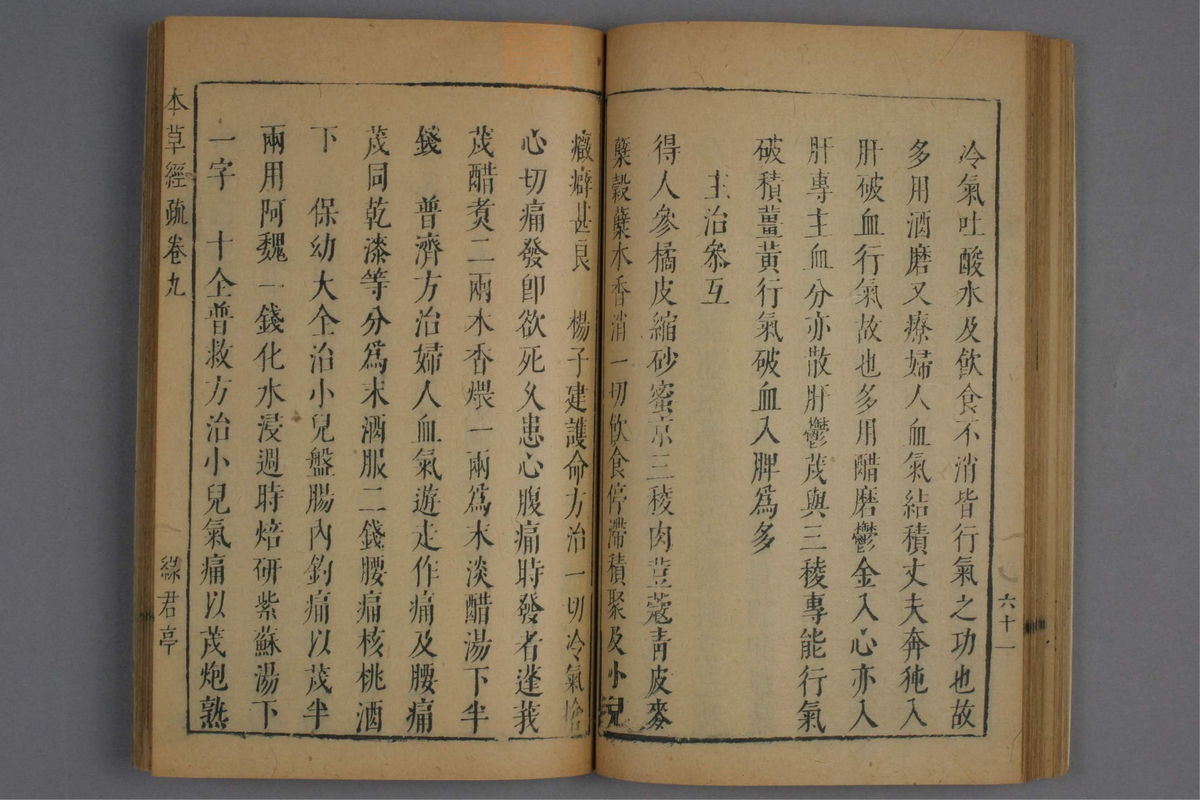 六十一
冷氣吐酸水及飲食不消皆行氣之功也故
多用酒磨又療婦人血氣結積丈夫奔㹠入
肝破血行氣故也多用醋磨鬱金入心亦入
肝專主血分亦散肝鬱茂與三稜專能行氣
破積薑黃行氣破血入脾爲多
主治叅互
得人參橘皮縮砂蜜京三稜肉荳蔻青皮麥
櫱穀櫱木香消一切飲食停滯積聚及小兒
癥癖甚良 楊子建護命方治一切冷氣搶
心切痛發卽欲死久患心腹痛時發者蓬莪
茂醋煑二兩木香煨一兩爲末淡醋湯下半
錢 普濟方治婦人血氣遊走作痛及腰痛
茂同乾漆等分爲末酒服二錢腰痛核桃酒
下 保幼大全治小兒盤腸內釣痛以茂半
兩用阿魏一錢化水浸週時焙研紫蘇湯下
一字 十全普救方治小兒氣痛以茂炮熟
本草經疏卷九
綠君亭